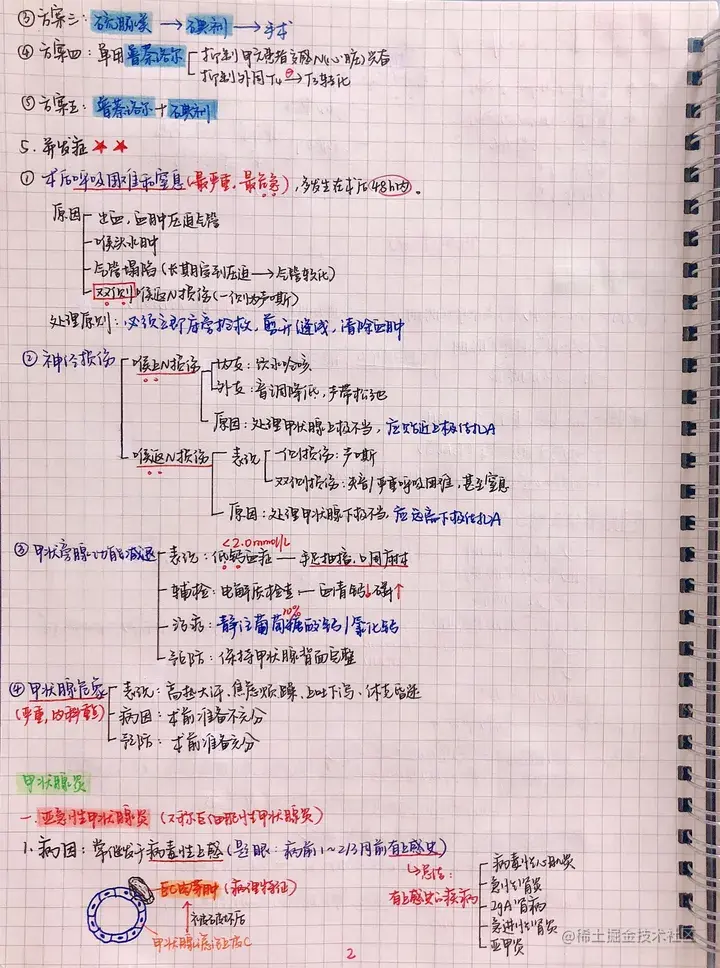 ③ 方案三：硫脲类 → 碘剂 → 手术
④ 方案四：单用普萘洛尔 抑制甲亢患者交感N(心脏)兴奋
抑制外周T4 → T3转化
⑤ 方案五：普萘洛尔 + 碘剂
5. 并发症 ★★
① 术后呼吸困难和窒息(最严重，最危急)，多发生在术后48h内。
原因 出血，血肿压迫气管
喉头水肿
气管塌陷(长期受到压迫 → 气管软化)
双侧喉返N损伤(一侧为声嘶)
处理原则：必须立即床旁抢救，剪开缝线，清除血肿
② 神经损伤 喉上N损伤 内支：饮水呛咳
外支：音调降低，声带松弛
原因：处理甲状腺上极不当，应贴近上极结扎A
喉返N损伤 表现 一侧损伤：声嘶
双侧损伤：失音/严重呼吸困难，甚至窒息
原因：处理甲状腺下极不当，应远离下极结扎A
<2.0mmol/L
③ 甲状旁腺功能减退 表现：低钙血症 — 手足抽搐，口周麻木
辅检：电解质检查 — 血清钙↓磷↑
10%
治疗：静注葡萄糖酸钙/氯化钙
预防：保持甲状腺背面完整
④ 甲状腺危象 表现：高热大汗，焦虑烦躁，上吐下泻，休克昏迷
(严重，内科重点) 病因：术前准备不充分
预防：术前准备充分
甲状腺炎
一. 亚急性甲状腺炎 (又称巨细胞性甲状腺炎)
1. 病因：常继发于病毒性上感(题眼：病前1~2/3周前有上感史)
总结：
有上感史的疾病
病毒性心肌炎
急性肾炎
IgA肾病
急进性肾炎
亚甲炎
巨细胞肉芽肿 (病理特征)
被破坏后
甲状腺滤泡上皮C
2
@稀土掘金技术社区